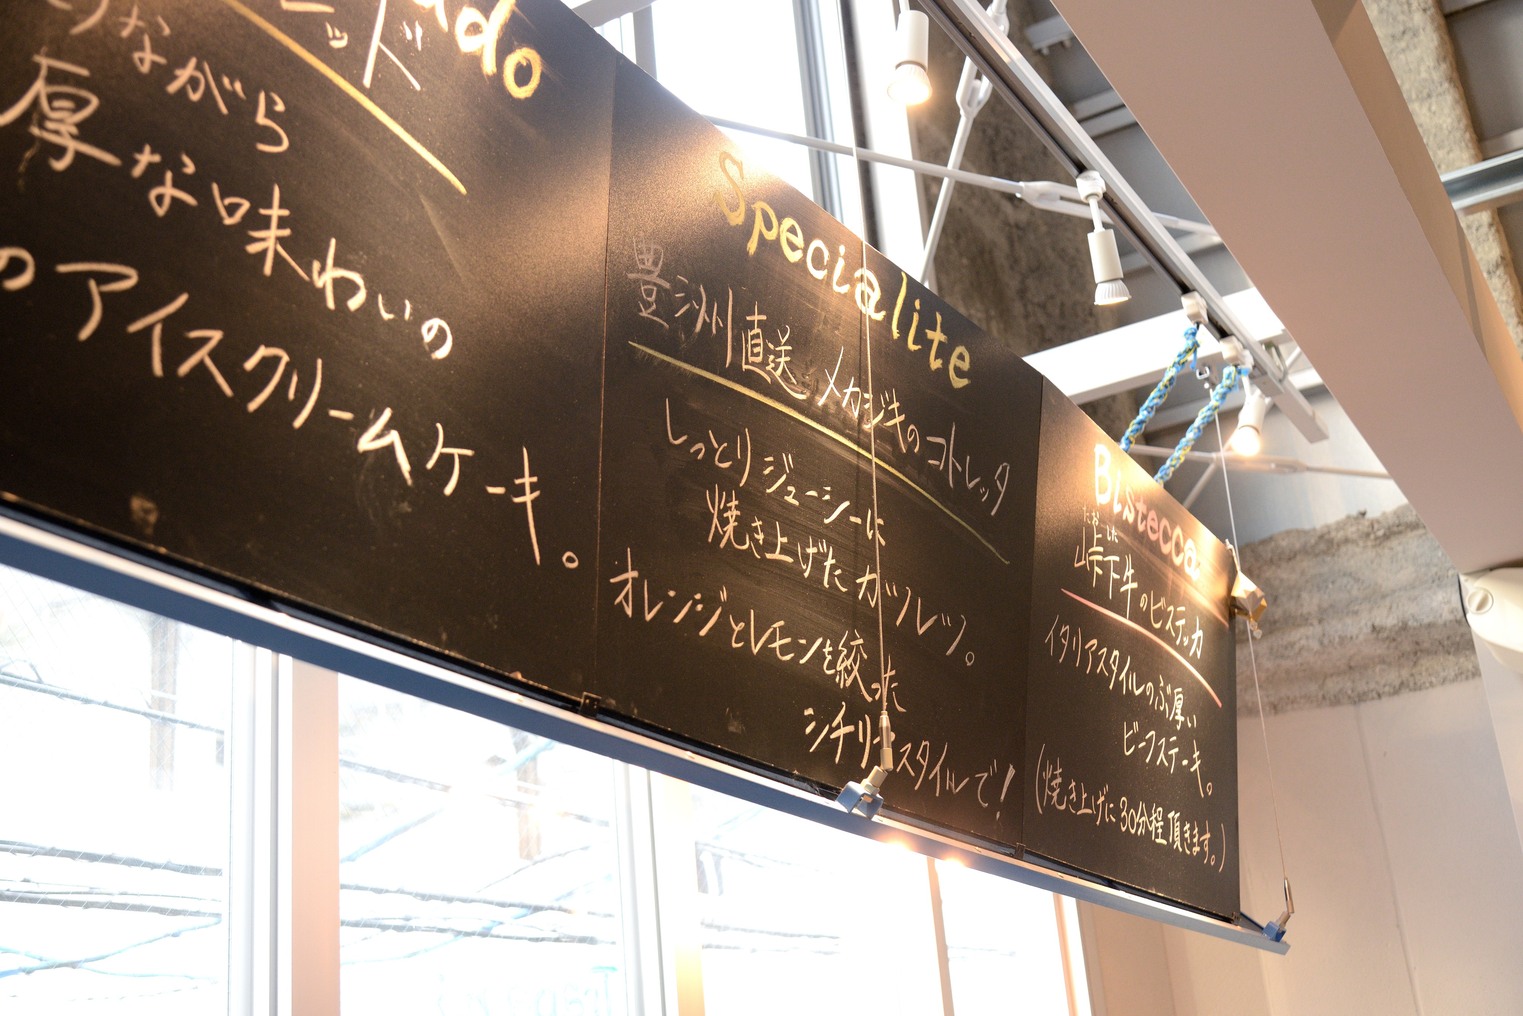 ado
ニッド
りながら
厚な味わいの
のアイスクリームケーキ。
Specialite
豊洲直送 メカジキのコトレッタ
しっとりジューシーに
焼き上げたカツレツ。
オレンジとレモンを絞った
シチリアスタイルで!
Bistecca
峠下牛のビステッカ
イタリアスタイルのぶ厚い
ビーフステーキ。
(焼き上げに30分程頂きます。)